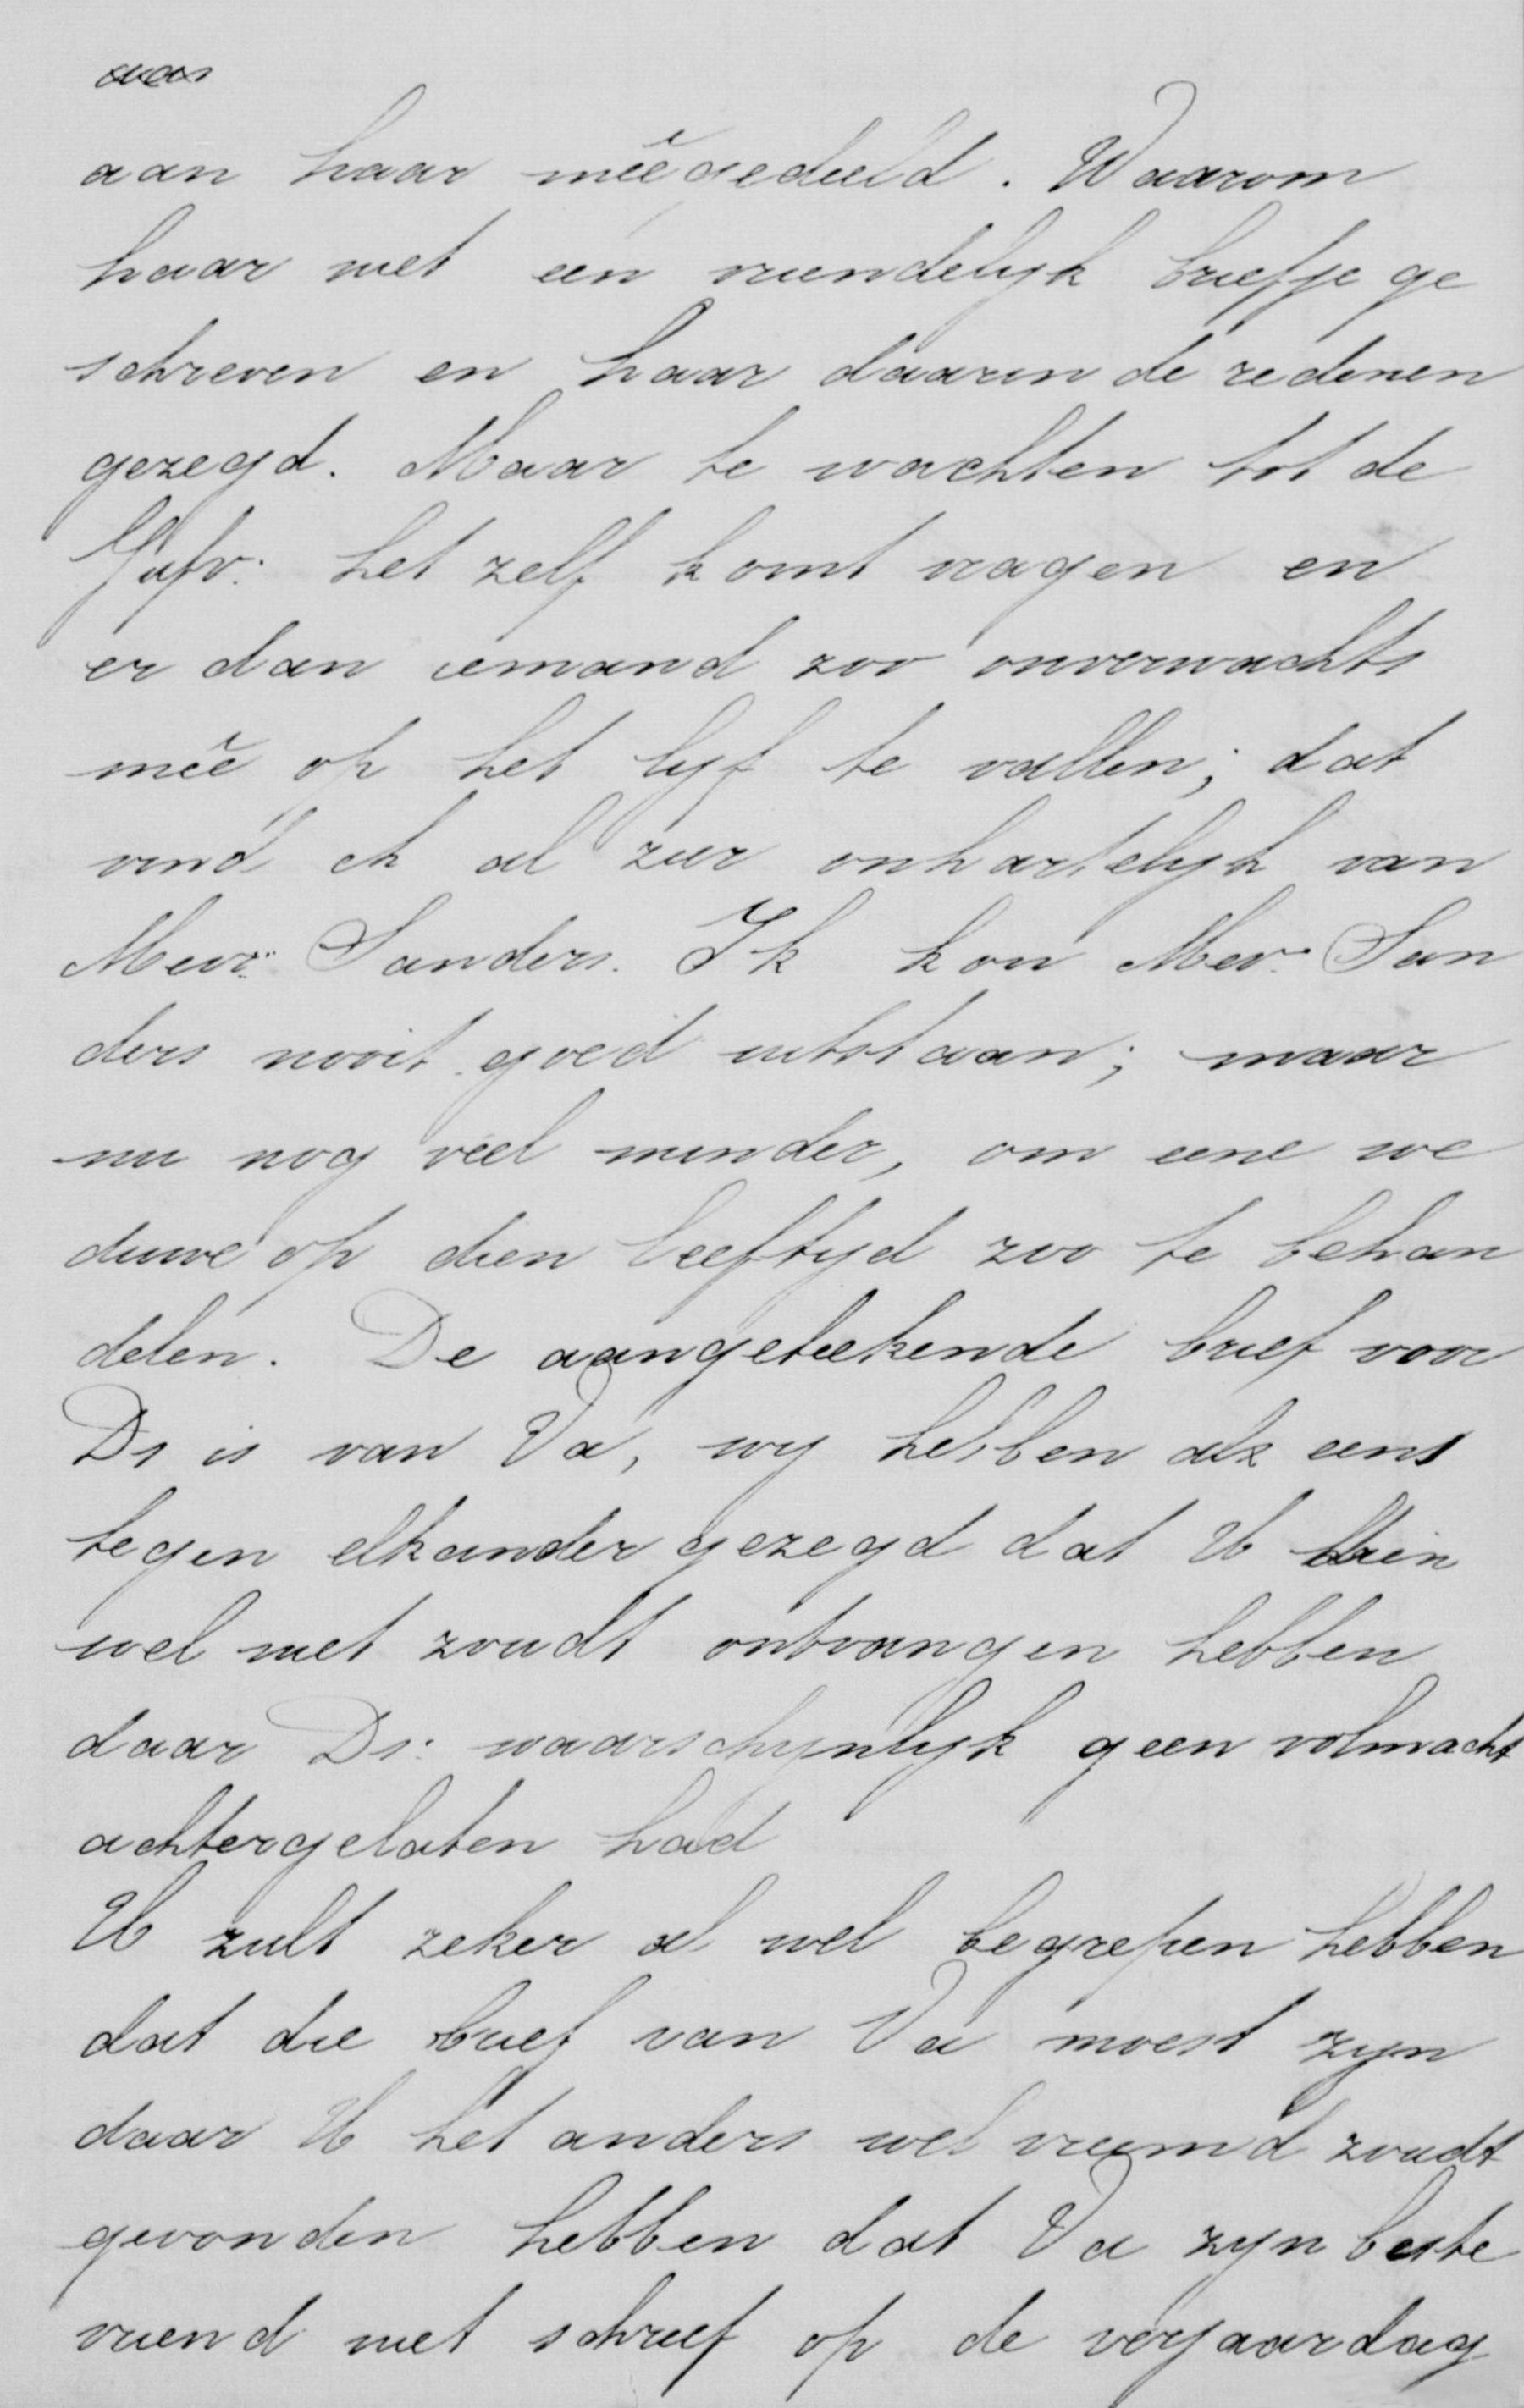 aan haar meêgedeeld. Waarom
haar niet een vriendelijk briefje ge
schreven en haar daarin de redenen
gezegd. Maar te wachten tot de
Jufv: het zelf komt vragen en
er dan iemand zoo onverwachts
meê op het lijf te vallen; dat
vind ik al zeer onhartelijk van
Mevr: Sanders. Ik kon Mev: San
ders nooit goed uitstaan; maar
nu nog veel minder, om eene we
duwe op dien leeftijd zoo te behan
delen. De aangeteekende brief voor
Ds is van Va, wij hebben al eens
tegen elkander gezegd dat U dien
wel niet zoudt ontvangen hebben
daar Ds: waarschijnlijk geen volmacht
achtergelaten had
U zult zeker al wel begrepen hebben
dat die brief van Va moest zijn
daar U het anders wel vreemd zoudt
gevonden hebben dat Va zijn beste
vriend niet schreef op de verjaardag